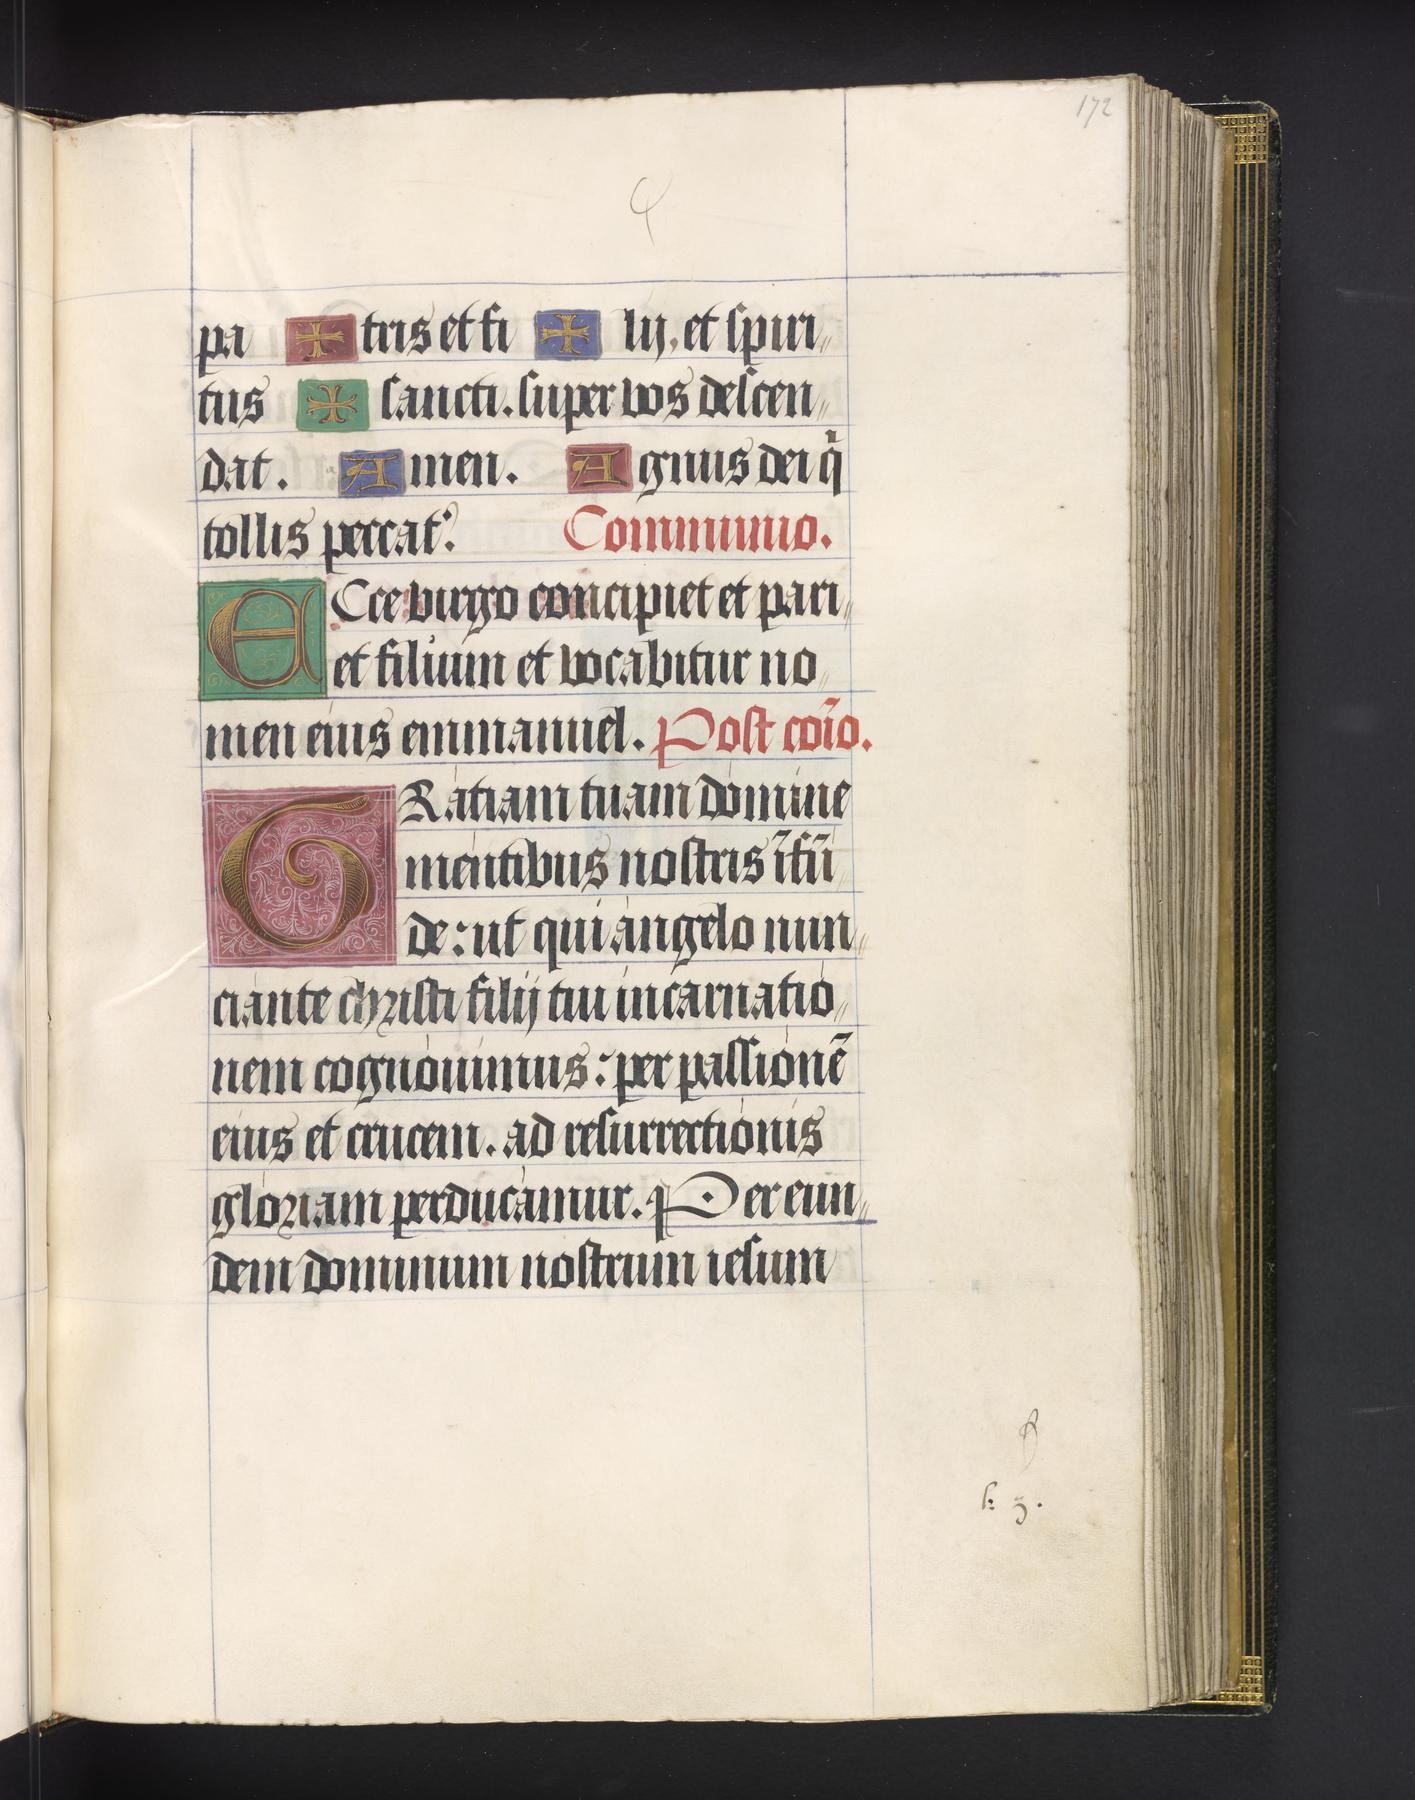 172
pa ✠ tris et fi ✠ lij. et spiri〃
tus ✠ sancti. super vos descen〃
dat. Amen. Agnus dei q̃
tollis peccat͛. Communio.
ECce virgo concipiet et pari〃
et filium et vocabitur no〃
men eius emmanuel. Post coĩo.
GRatiam tuam domine
mentibus nostris ĩfũ〃
de: ut qui angelo nun〃
ciante christi filij tui incarnatio〃
nem cognouimus: per passionẽ
eius et crucem. ad resurrectionis
gloriam perducamur. Per eun〃
dem dominum nostrum iesum
k 3.